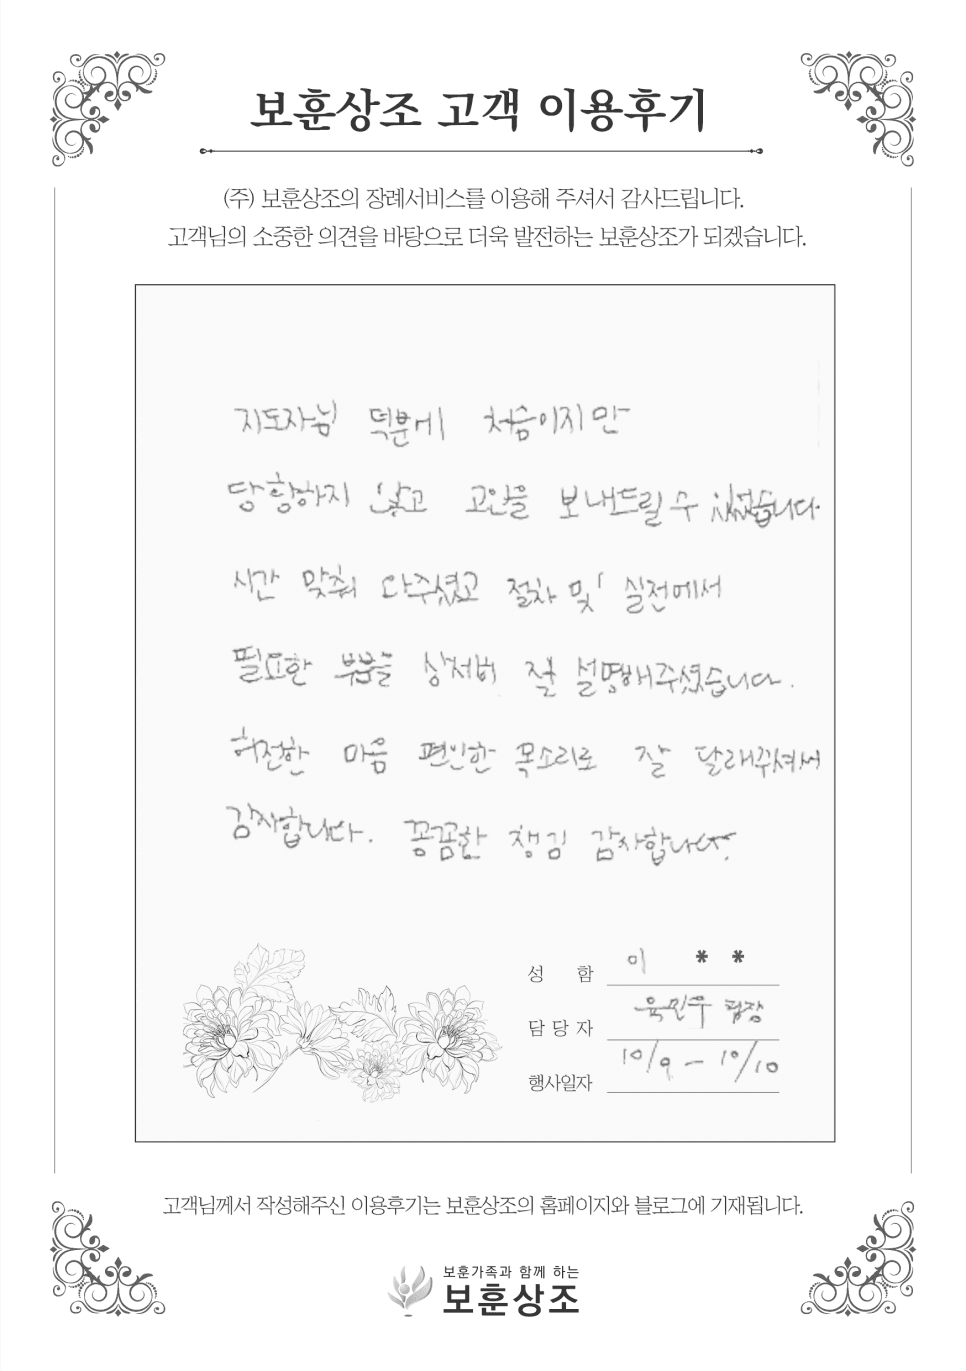 보훈상조 고객 이용후기
(주) 보훈상조의 장례서비스를 이용해 주셔서 감사드립니다.
고객님의 소중한 의견을 바탕으로 더욱 발전하는 보훈상조가 되겠습니다.
지도자님 덕분에 처음이지만
당황하지 않고 고인을 보내드릴 수 있었습니다
시간 맞춰 와주셨고 절차 및 실전에서
필요한 부분을 상세히 잘 설명해주셨습니다.
허전한 마음 편안한 목소리로 잘 달래주셔서
감사합니다. 꼼꼼한 챙김 감사합니다.
성 함 이 * *
담당자 육민우 팀장
행사일자 10/9 - 10/10
고객님께서 작성해주신 이용후기는 보훈상조의 홈페이지와 블로그에 기재됩니다.
보훈가족과 함께 하는
보훈상조